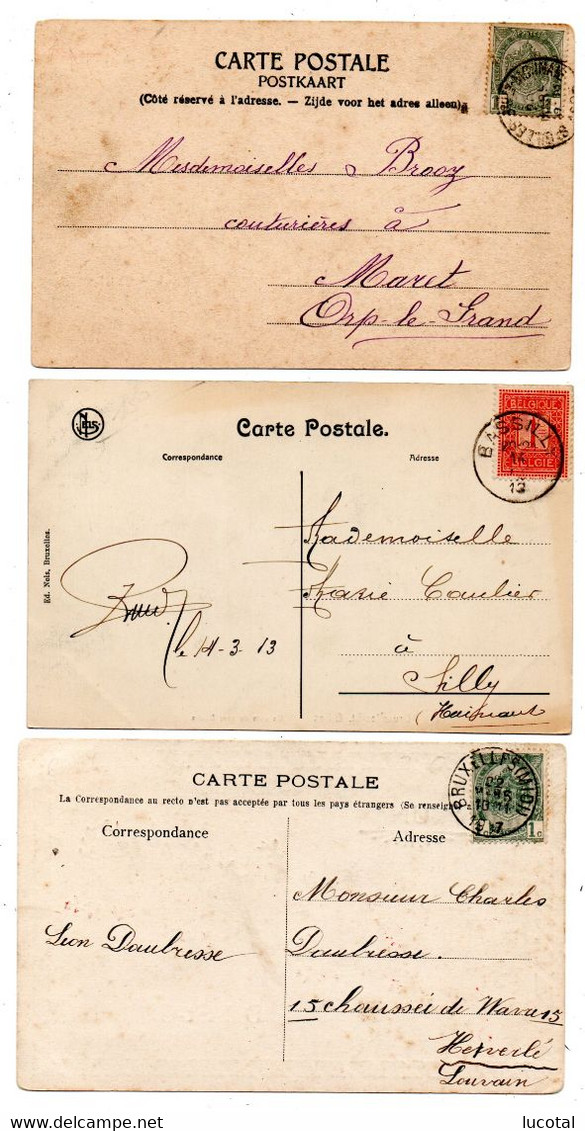 CARTE POSTALE
POSTKAART
(Côté réservé à l'adresse. — Zijde voor het adres alleen)
Mesdemoiselles Brooz
couturières à
Maret
Orp-le-Grand
Carte Postale.
Correspondance
Adresse
BELGIQUE
1
BELGIË
BASSILLY
14
13
Ed. Nels, Bruxelles.
Mademoiselle
Marie Caulier
à
Silly
(Hainaut)
le 14-3-13
CARTE POSTALE
La Correspondance au recto n'est pas acceptée par tous les pays étrangers (Se renseign
Correspondance
Adresse
BRUXELLES (MIDI)
1c
Léon Daubresse
Monsieur Charles
Daubresse.
15 chaussée de Wavre 15
Heverlé
Louvain
lucotal